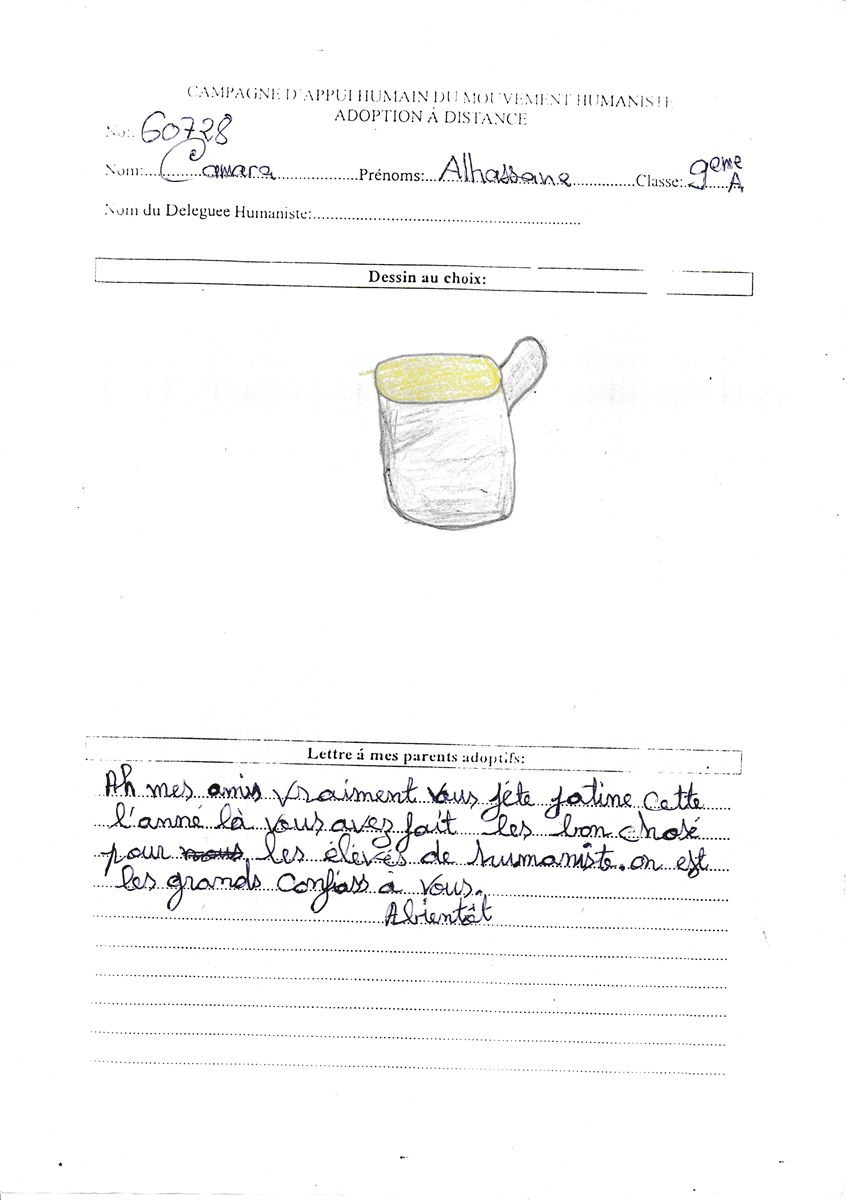 CAMPAGNE D'APPUI HUMAIN DU MOUVEMENT HUMANISTE
ADOPTION Á DISTANCE
No:. 60728
Nom:....Camara....Prénoms:...Alhassane....Classe:..9eme A
Nom du Deleguee Humaniste:....
Dessin au choix:
Lettre á mes parents adoptifs:
Ah mes amis vraiment vous féte fatine cette
l'anné là vous avez fait les bon chosé
pour nous les élèves de humaniste. on est
les grands Confiass à vous.
Abientôt